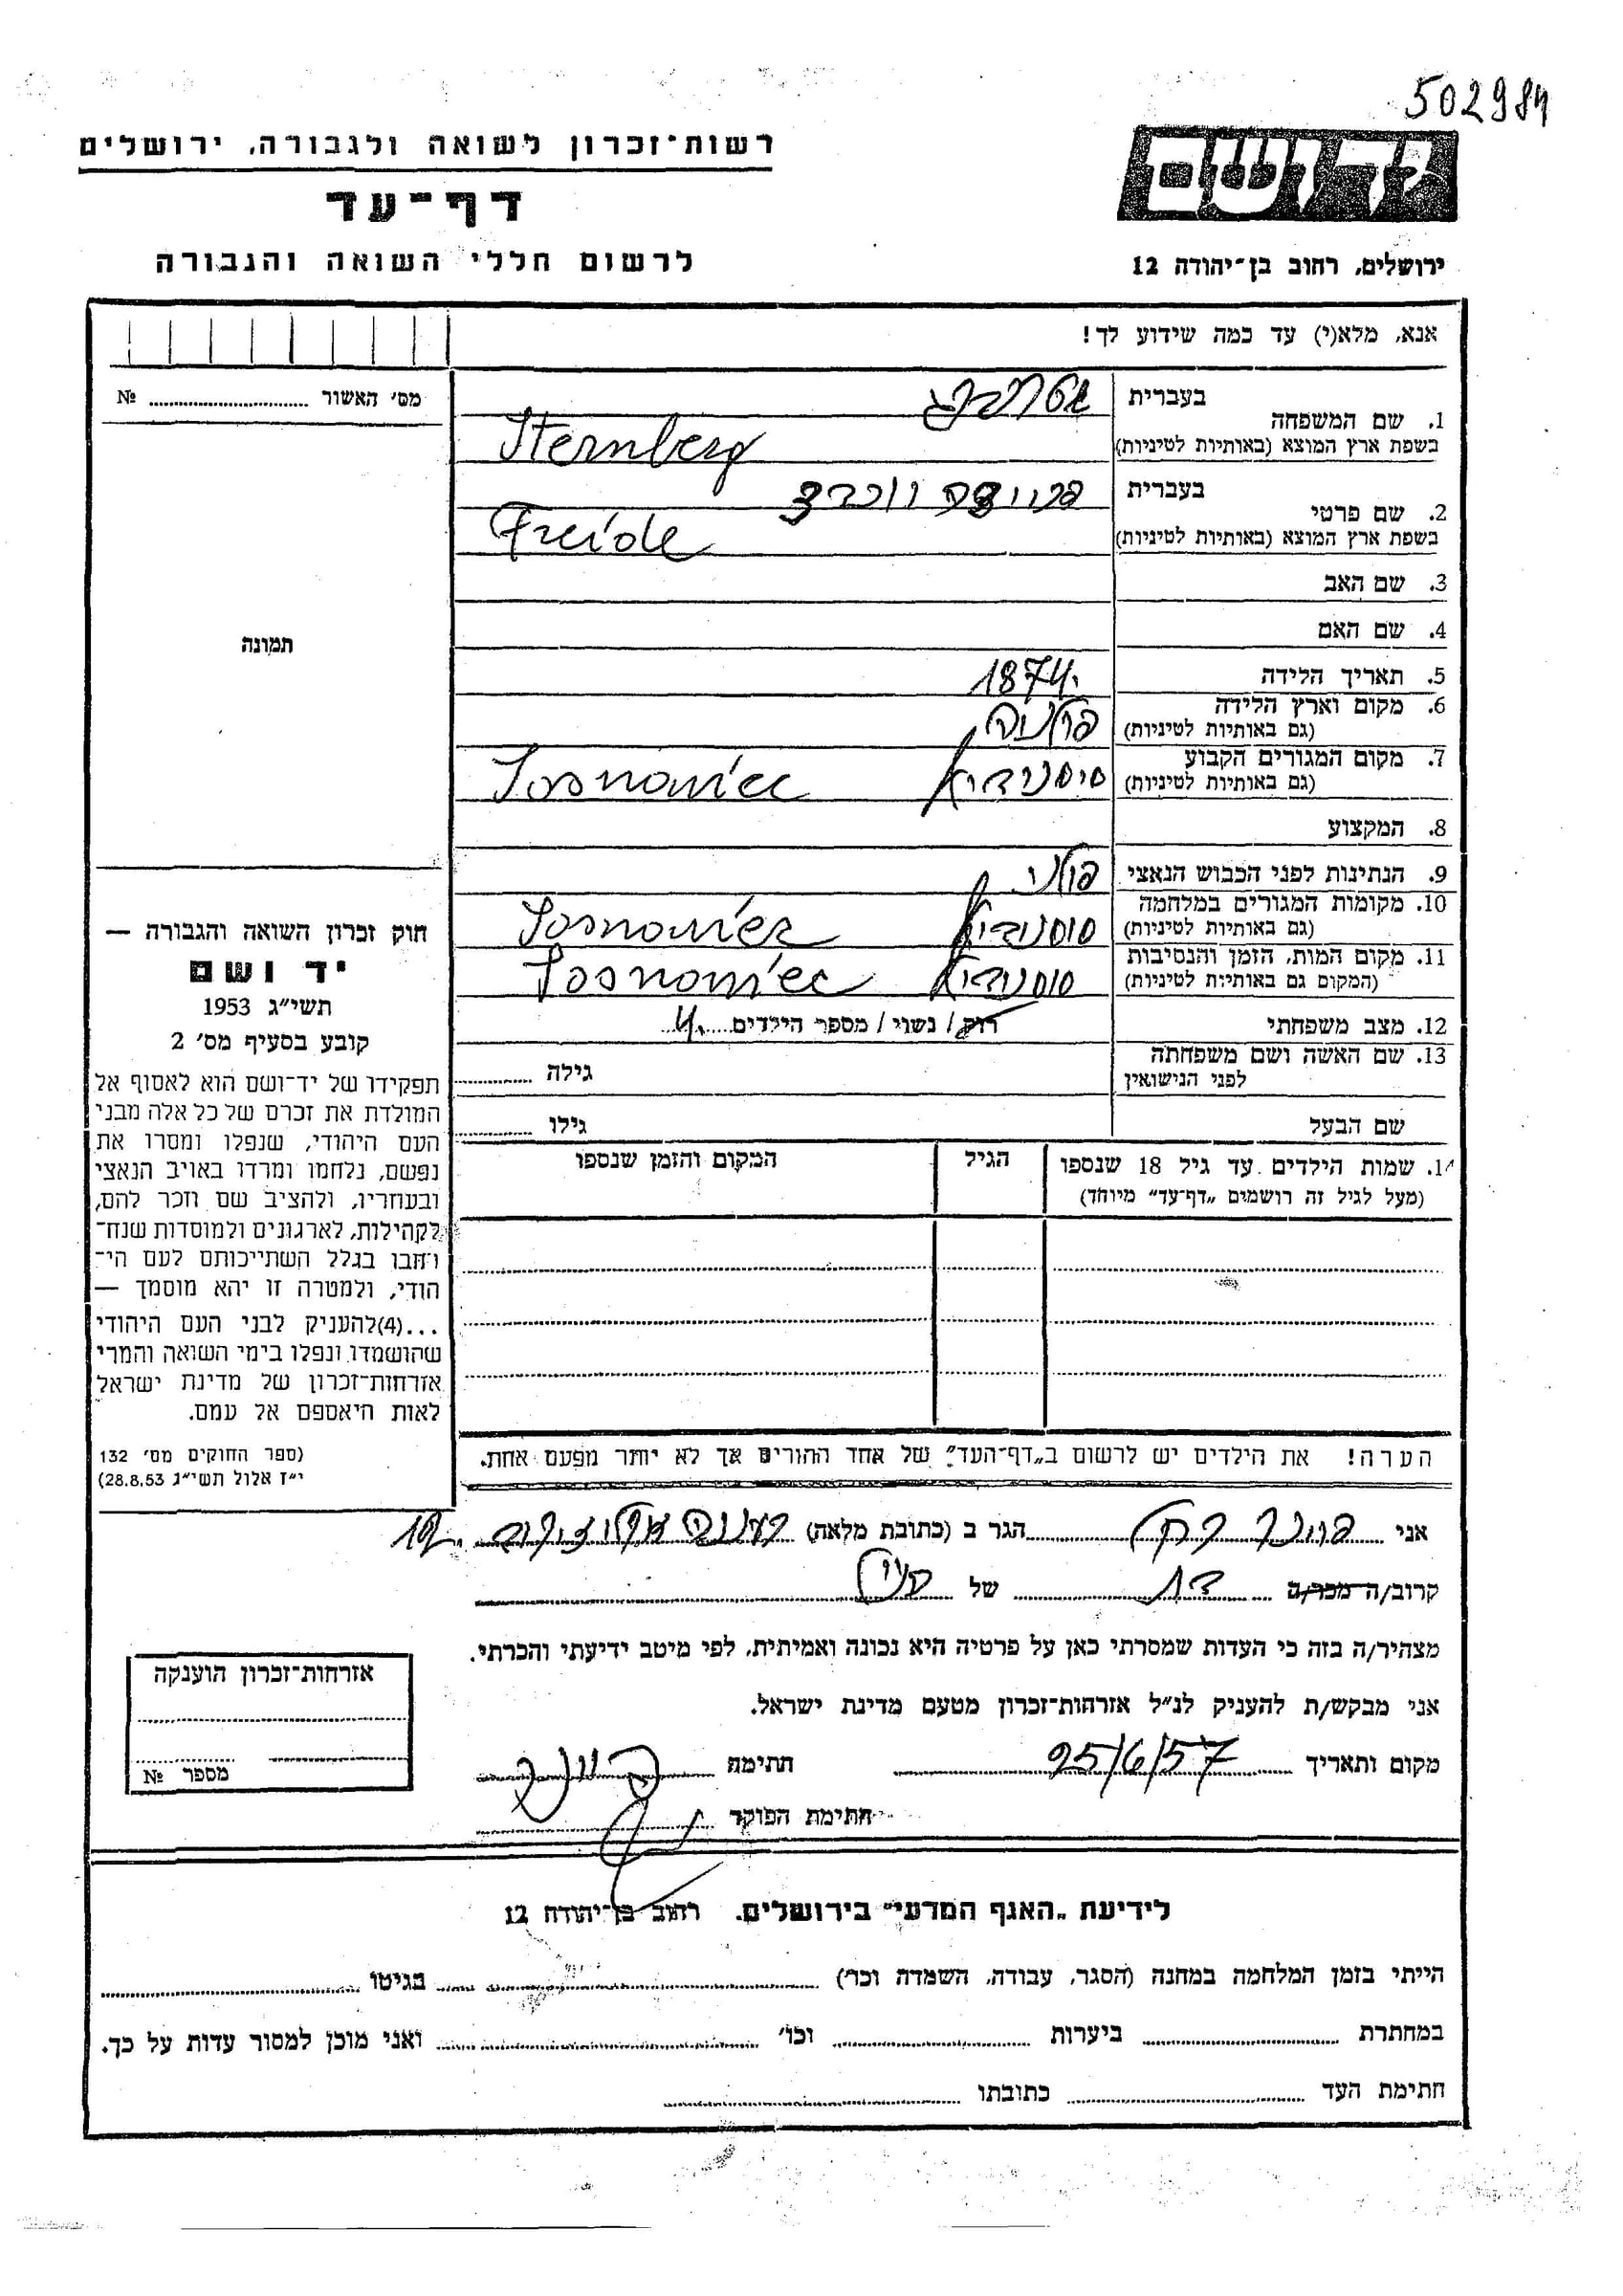 502984
רשות־זכרון לשואה ולגבורה, ירושלים
דף־עד
לרשום חללי השואה והגבורה
יד ושם
ירושלים, רחוב בן־יהודה 12
אנא, מלא(י) עד כמה שידוע לך!
מס׳ האשור № ........
תמונה
1. שם המשפחה
בעברית שטרנברג
בשפת ארץ המוצא (באותיות לטיניות) Sternberg
2. שם פרטי
בעברית
בשפת ארץ המוצא (באותיות לטיניות) Freide
3. שם האב
4. שם האם
5. תאריך הלידה 1874.
6. מקום וארץ הלידה
(גם באותיות לטיניות) פולניה
7. מקום המגורים הקבוע
(גם באותיות לטיניות) Sosnowiec
8. המקצוע
9. הנתינות לפני הכבוש הנאצי פולני
10. מקומות המגורים במלחמה
(גם באותיות לטיניות) Sosnowiec
11. מקום המות, הזמן והנסיבות
(המקום גם באותיות לטיניות) Sosnowiec
12. מצב משפחתי רוק/ נשוי/ מספר הילדים 4.
13. שם האשה ושם משפחתה
לפני הנישואין
גילה ........
שם הבעל
גילו ........
14. שמות הילדים עד גיל 18 שנספו
(מעל לגיל זה רושמים „דף־עד” מיוחד)
הגיל
המקום והזמן שנספו
הערה! את הילדים יש לרשום ב„דף־העד” של אחד ההורים אך לא יותר מפעם אחת.
חוק זכרון השואה והגבורה —
יד ושם
תשי״ג 1953
קובע בסעיף מס׳ 2
תפקידו של יד־ושם הוא לאסוף אל
המולדת את זכרם של כל אלה מבני
העם היהודי, שנפלו ומסרו את
נפשם, נלחמו ומרדו באויב הנאצי
ובעוזריו, ולהציב שם וזכר להם,
לקהילות, לארגונים ולמוסדות שנח־
רבו בגלל השתייכותם לעם הי־
הודי, ולמטרה זו יהא מוסמך —
...(4)להעניק לבני העם היהודי
שהושמדו ונפלו בימי השואה והמרי
אזרחות־זכרון של מדינת ישראל
לאות היאספם אל עמם.
(ספר החוקים מס׳ 132
י״ז אלול תשי״ג 28.8.53)
אני ........ רחל הגר ב (כתובת מלאה) רעננה ........ 19.
קרוב/ה מכר/ה ........ של ........
מצהיר/ה בזה כי העדות שמסרתי כאן על פרטיה היא נכונה ואמיתית, לפי מיטב ידיעתי והכרתי.
אני מבקש/ת להעניק לנ״ל אזרחות־זכרון מטעם מדינת ישראל.
מקום ותאריך 25/6/57 חתימה
חתימת הפוקד
אזרחות־זכרון הוענקה
מספר №
לידיעת „האגף המדעי” בירושלים. רחוב בן־יהודה 12
הייתי בזמן המלחמה במחנה (הסגר, עבודה, השמדה וכו׳) ........ בגיטו ........
במחתרת ........ ביערות ........ וכו׳ ........ ואני מוכן למסור עדות על כך.
חתימת העד ........ כתובתו ........